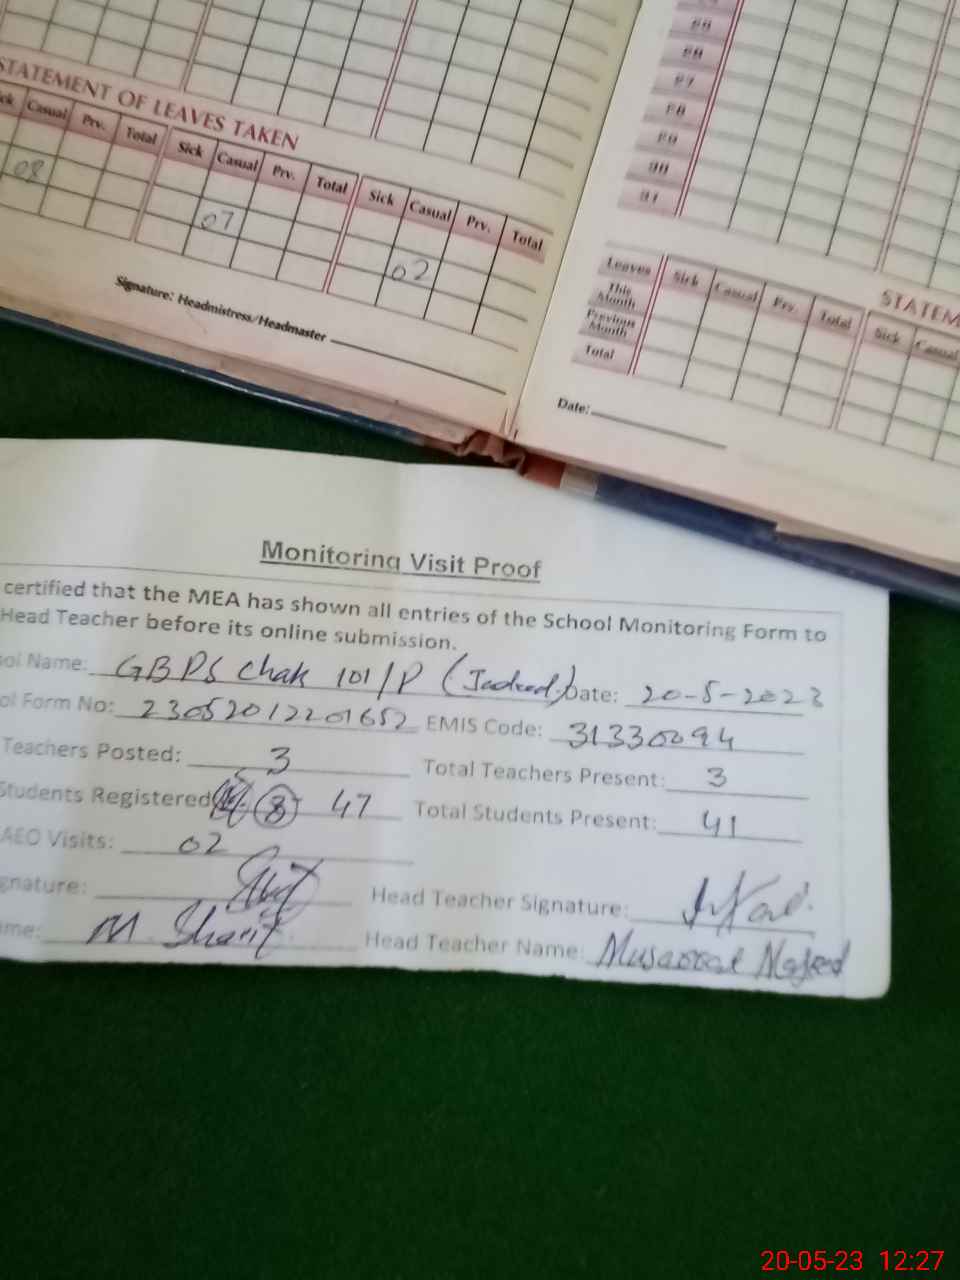 STATEMENT OF LEAVES TAKEN
Casual Prv. Total Sick Casual Prv. Total Sick Casual Prv. Total
08
07
02
Signature: Headmistress/Headmaster
27
28
29
30
31
STATEM
Leaves Sick Casual Prv. Total Sick Casual
This Month
Previous Month
Total
Date:
Monitoring Visit Proof
certified that the MEA has shown all entries of the School Monitoring Form to
Head Teacher before its online submission.
ol Name: GBPS Chak 101/P Date: 20-5-2023
ol Form No: 23052012201652 EMIS Code: 31330094
Teachers Posted: 3 Total Teachers Present: 3
Students Registered 47 Total Students Present: 41
AEO Visits: 02
gnature: Head Teacher Signature:
me: M. Sharif Head Teacher Name: Musarrat Majeed
20-05-23 12:27